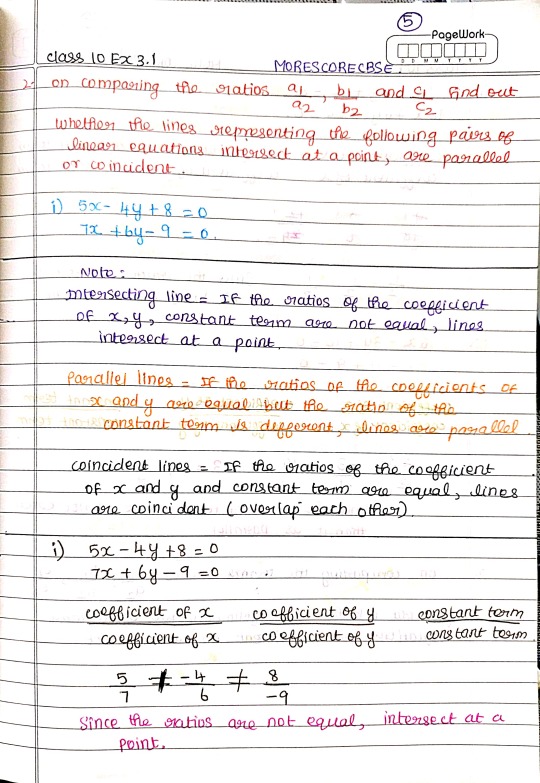 5
PageWork
D D M M Y Y Y Y
class 10 Ex 3.1
MORESCORECBSE.
2. on comparing the ratios a1/a2, b1/b2 and c1/c2 find out
whether the lines representing the following pairs of
linear equations intersect at a point, are parallel
or coincident.
i) 5x - 4y + 8 = 0
7x + 6y - 9 = 0.
Note:
Intersecting line = If the ratios of the coefficient
of x, y, constant term are not equal, lines
intersect at a point.
Parallel lines = If the ratios of the coefficients of
x and y are equal but the ratio of the
constant term is different, lines are parallel.
coincident lines = If the ratios of the coefficient
of x and y and constant term are equal, lines
are coincident (overlap each other).
i) 5x - 4y + 8 = 0
7x + 6y - 9 = 0
coefficient of x coefficient of y constant term
coefficient of x coefficient of y constant term
5/7 ≠ -4/6 ≠ 8/-9
Since the ratios are not equal, intersect at a
point.